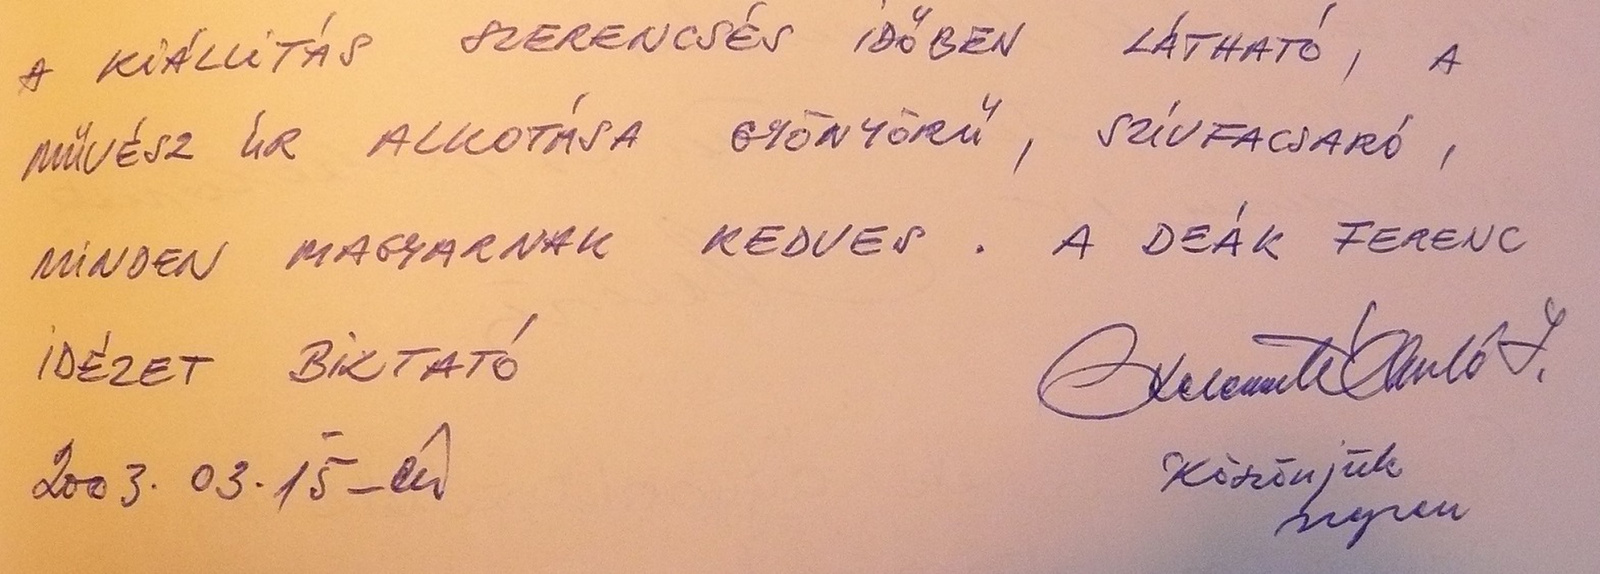 A KIÁLLÍTÁS SZERENCSÉS IDŐBEN LÁTHATÓ, A
MŰVÉSZ ÚR ALKOTÁSA GYÖNYÖRŰ, SZÍVFACSARÓ,
MINDEN MAGYARNAK KEDVES. A DEÁK FERENC
IDÉZET BIKTATÓ
2003. 03. 15-én
Köszönjük